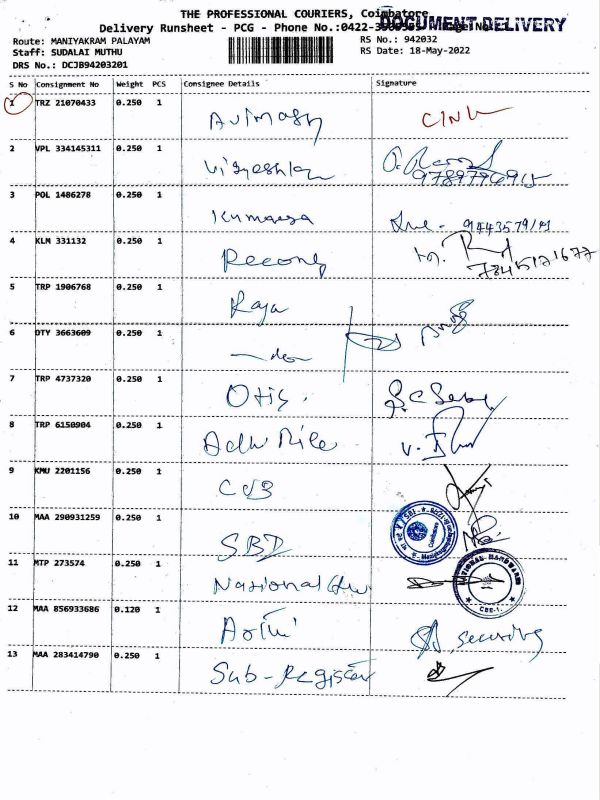 THE PROFESSIONAL COURIERS, Coimbatore
DOCUMENT DELIVERY
Delivery Runsheet - PCG - Phone No.:0422-
Route: MANIYAKRAM PALAYAM
RS No.: 942032
Staff: SUDALAI MUTHU
RS Date: 18-May-2022
DRS No.: DCJB94203201
S No Consignment No Weight PCS Consignee Details Signature
1 TRZ 21070433 0.250 1 Avinash
2 VPL 334145311 0.250 1
9789796915
3 POL 1486278 0.250 1
4 KLM 331132 0.250 1
7845171677
5 TRP 1906768 0.250 1 Raja
6 DTY 3663609 0.250 1 do
7 TRP 4737320 0.250 1 Otis.
8 TRP 6150904 0.250 1
9 KMU 2201156 0.250 1 CUB
10 MAA 290931259 0.250 1 SBI
11 MTP 273574 0.250 1 National
NATIONAL HARDWARE
CBE-1.
12 MAA 856933686 0.120 1
13 MAA 283414790 0.250 1 Sub-Register